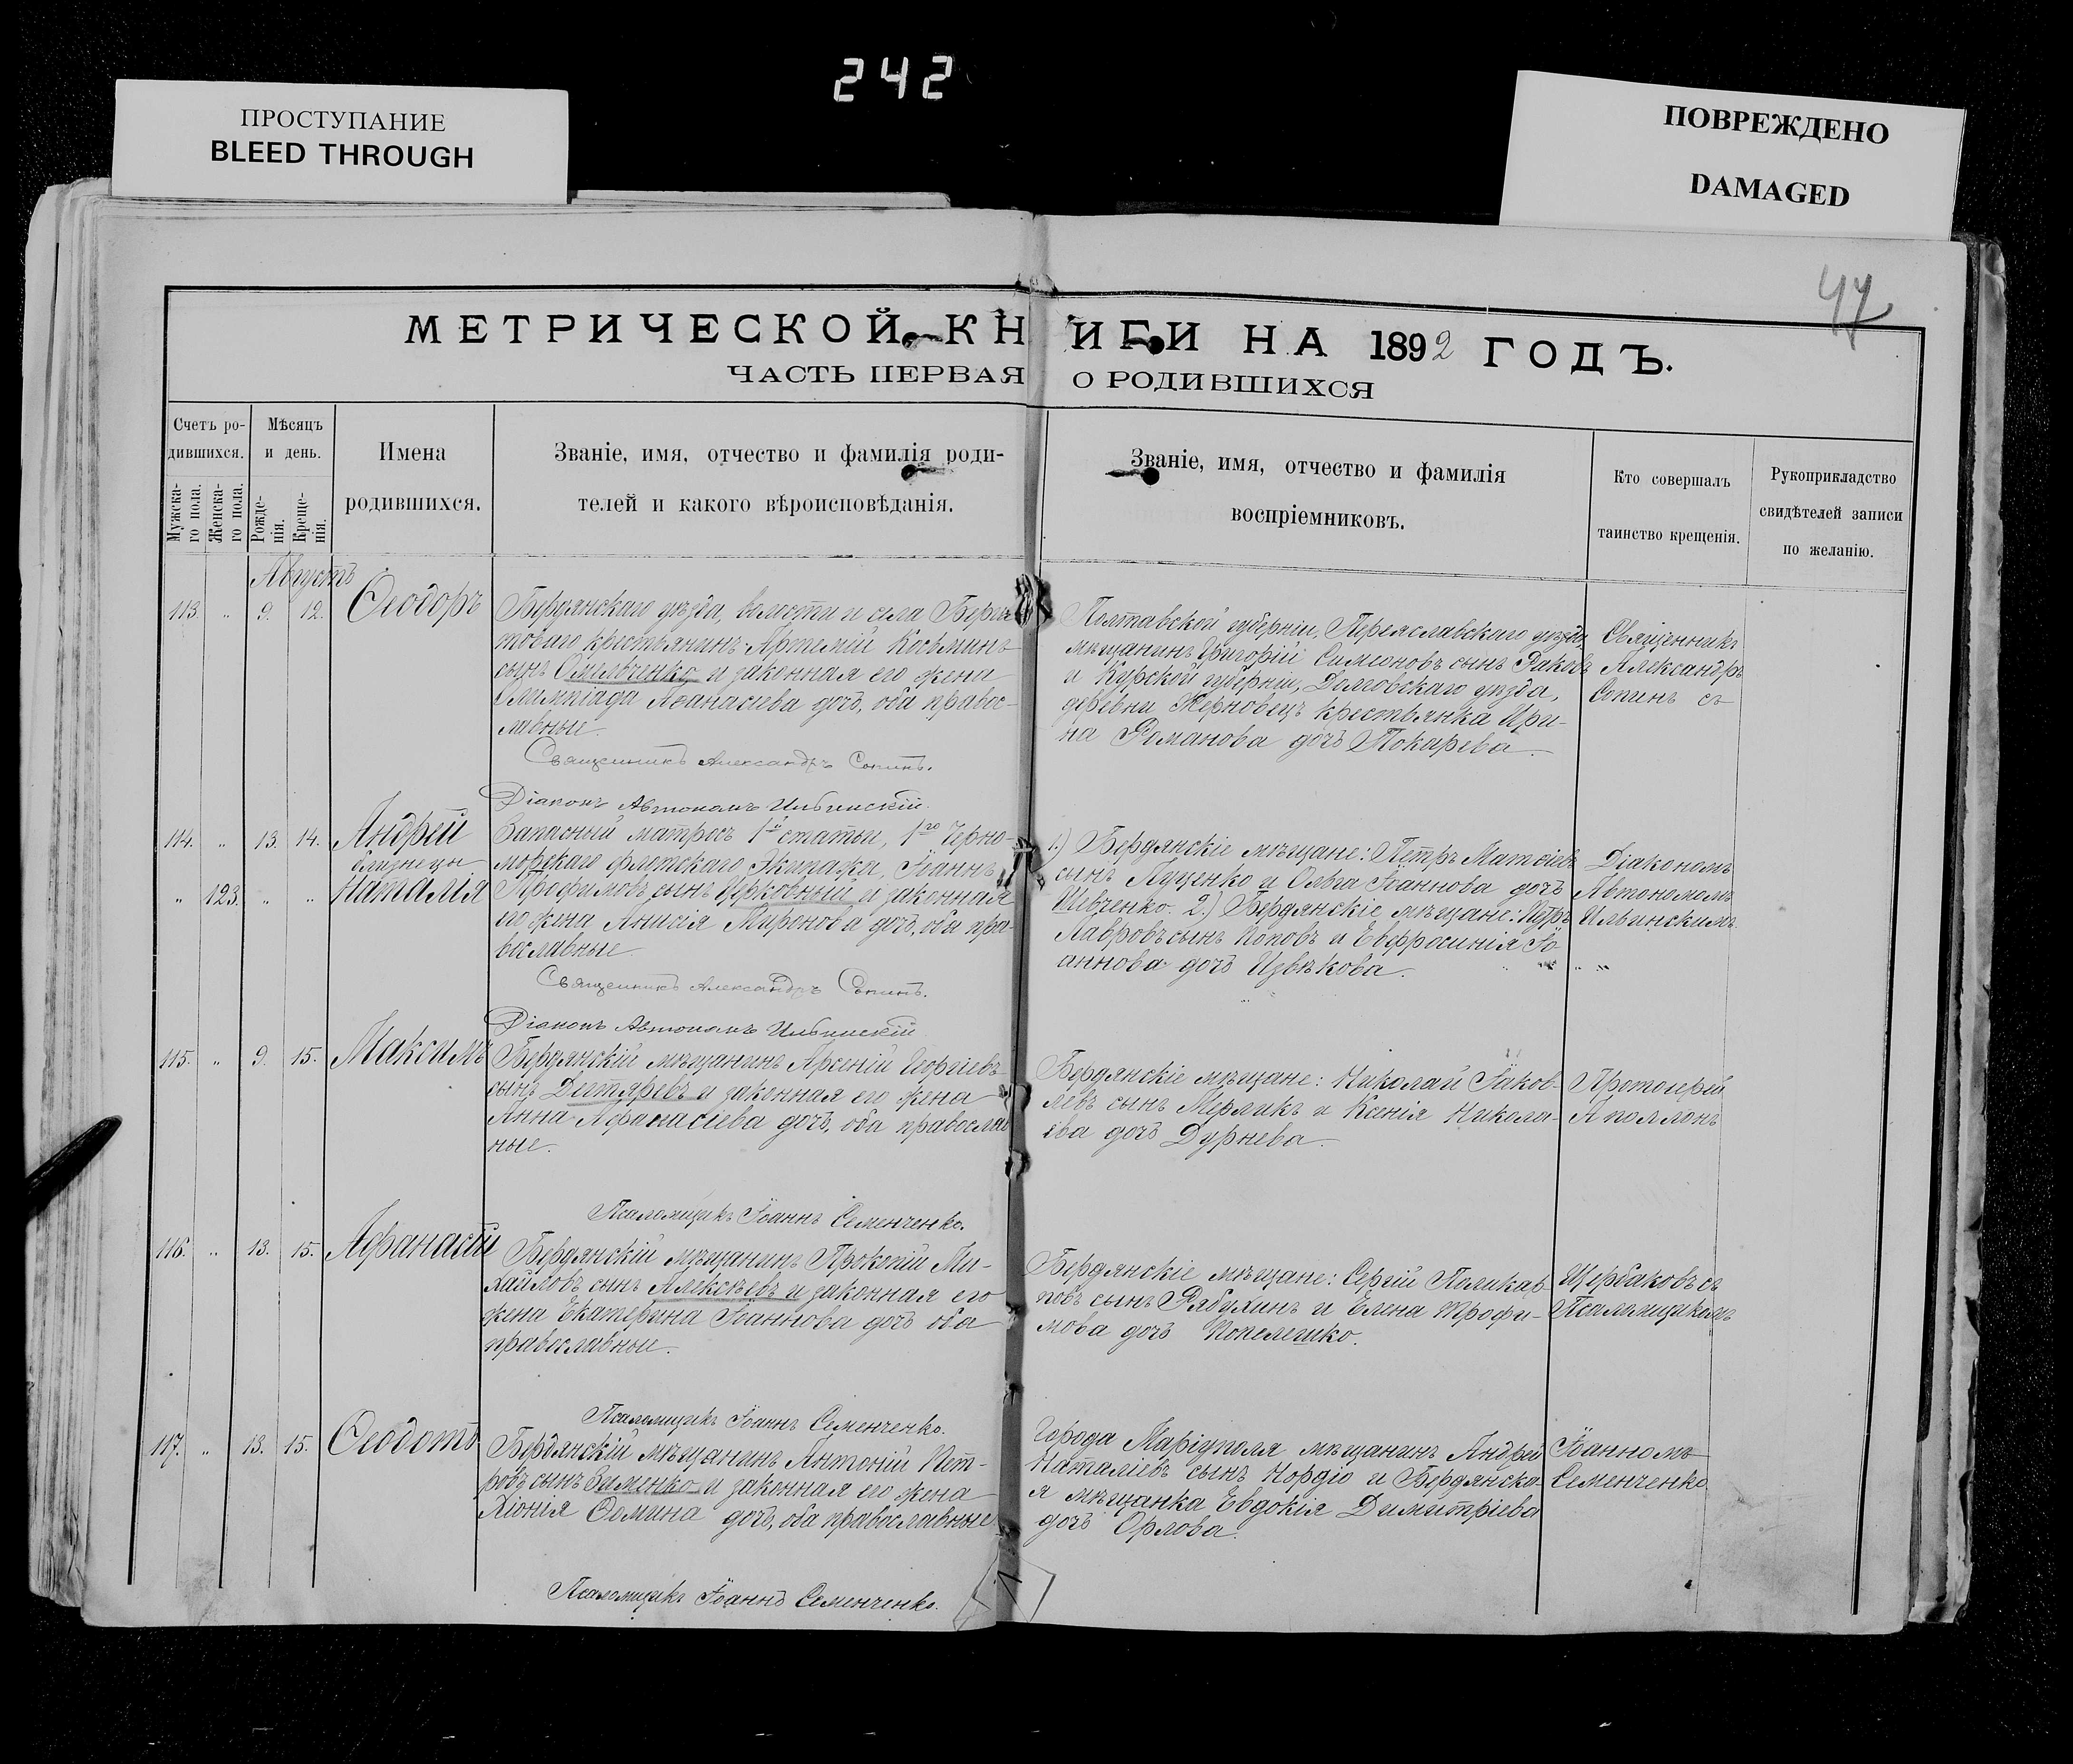 242
ПРОСТУПАНИЕ
BLEED THROUGH
ПОВРЕЖДЕНО
DAMAGED
47
МЕТРИЧЕСКОЙ КНИГИ НА 1892 ГОДЪ.
ЧАСТЬ ПЕРВАЯ О РОДИВШИХСЯ
Счетъ ро-
дившихся.
Мужска-
го пола.
Женска-
го пола.
Мѣсяцъ
и день.
Рожде-
нія.
Креще-
нія.
Имена
родившихся.
Званіе, имя, отчество и фамилія роди-
телей и какого вѣроисповѣданія.
Званіе, имя, отчество и фамилія
воспріемниковъ.
Кто совершалъ
таинство крещенія.
Рукоприкладство
свидѣтелей записи
по желанію.
Августъ
113. " 9. 12. Ѳеодоръ
Бердянскаго уѣзда, волости и села
крестьянинъ Артемій Косьминъ
сынъ Омельченко и законная его жена
Олимпіада Аѳанасіева дочь, оба правос-
лавные.
Священникъ Александръ Сопинъ.
Діаконъ Автономъ Ильинскій.
Полтавской губерніи, Переяславскаго уѣзда,
мѣщанинъ Григорій Симеоновъ сынъ Раковъ
и Курской губерніи, уѣзда,
деревни Жерновецъ крестьянка Ири-
на Романова дочь Токарева.
Священникъ
Александръ
Сопинъ съ
114. " 13. 14. Андрей
близнецы
" 123. " " Наталія
Запасный матросъ 1й статьи, 1го Черно-
морскаго флотскаго Экипажа, Іоаннъ
Трофимовъ сынъ Церковный и законная
его жена Анисія Миронова дочь, оба пра-
вославные.
Священникъ Александръ Сопинъ.
Діаконъ Автономъ Ильинскій
1.) Бердянскіе мѣщане: Петръ Матѳіевъ
сынъ Луценко и Ольга Іоаннова дочь
Шевченко. 2.) Бердянскіе мѣщане: Петръ
Лавровъ сынъ Поповъ и Евфросинія Іо-
аннова дочь Извѣкова.
Діакономъ
Автономомъ
Ильинскимъ.
115. " 9. 15. Максимъ
Бердянскій мѣщанинъ Арсеній Георгіевъ
сынъ Дегтяревъ и законная его жена
Анна Афанасіева дочь, оба православ
ные.
Псаломщикъ Іоаннъ Семенченко.
Бердянскіе мѣщане: Николай Іаков-
левъ сынъ Мерликъ и Ксенія Никола-
ева дочь Дурнева.
Протоіерей
Аполлонъ
116. " 13. 15. Афанасій
Бердянскій мѣщанинъ Прокопій Ми-
хайловъ сынъ Алексѣевъ и законная его
жена Екатерина Іоаннова дочь оба
православные.
Псаломщикъ Іоаннъ Семенченко.
Бердянскіе мѣщане: Сергій Поликар-
повъ сынъ Рябухинъ и Елена Трофи-
мова дочь Попелешко.
Щербаковъ съ
Псаломщикомъ
117. " 13. 15. Ѳеодотъ
Бердянскій мѣщанинъ Антоній Пет-
ровъ сынъ Зименко и законная его жена
Хіонія Ѳомина дочь, оба православные
Псаломщикъ Іоаннъ Семенченко.
Города Маріуполя мѣщанинъ Андрей
Наталіевъ сынъ Нордіо и Бердянска-
я мѣщанка Евдокія Димитріева
дочь Орлова.
Іоанномъ
Семенченко